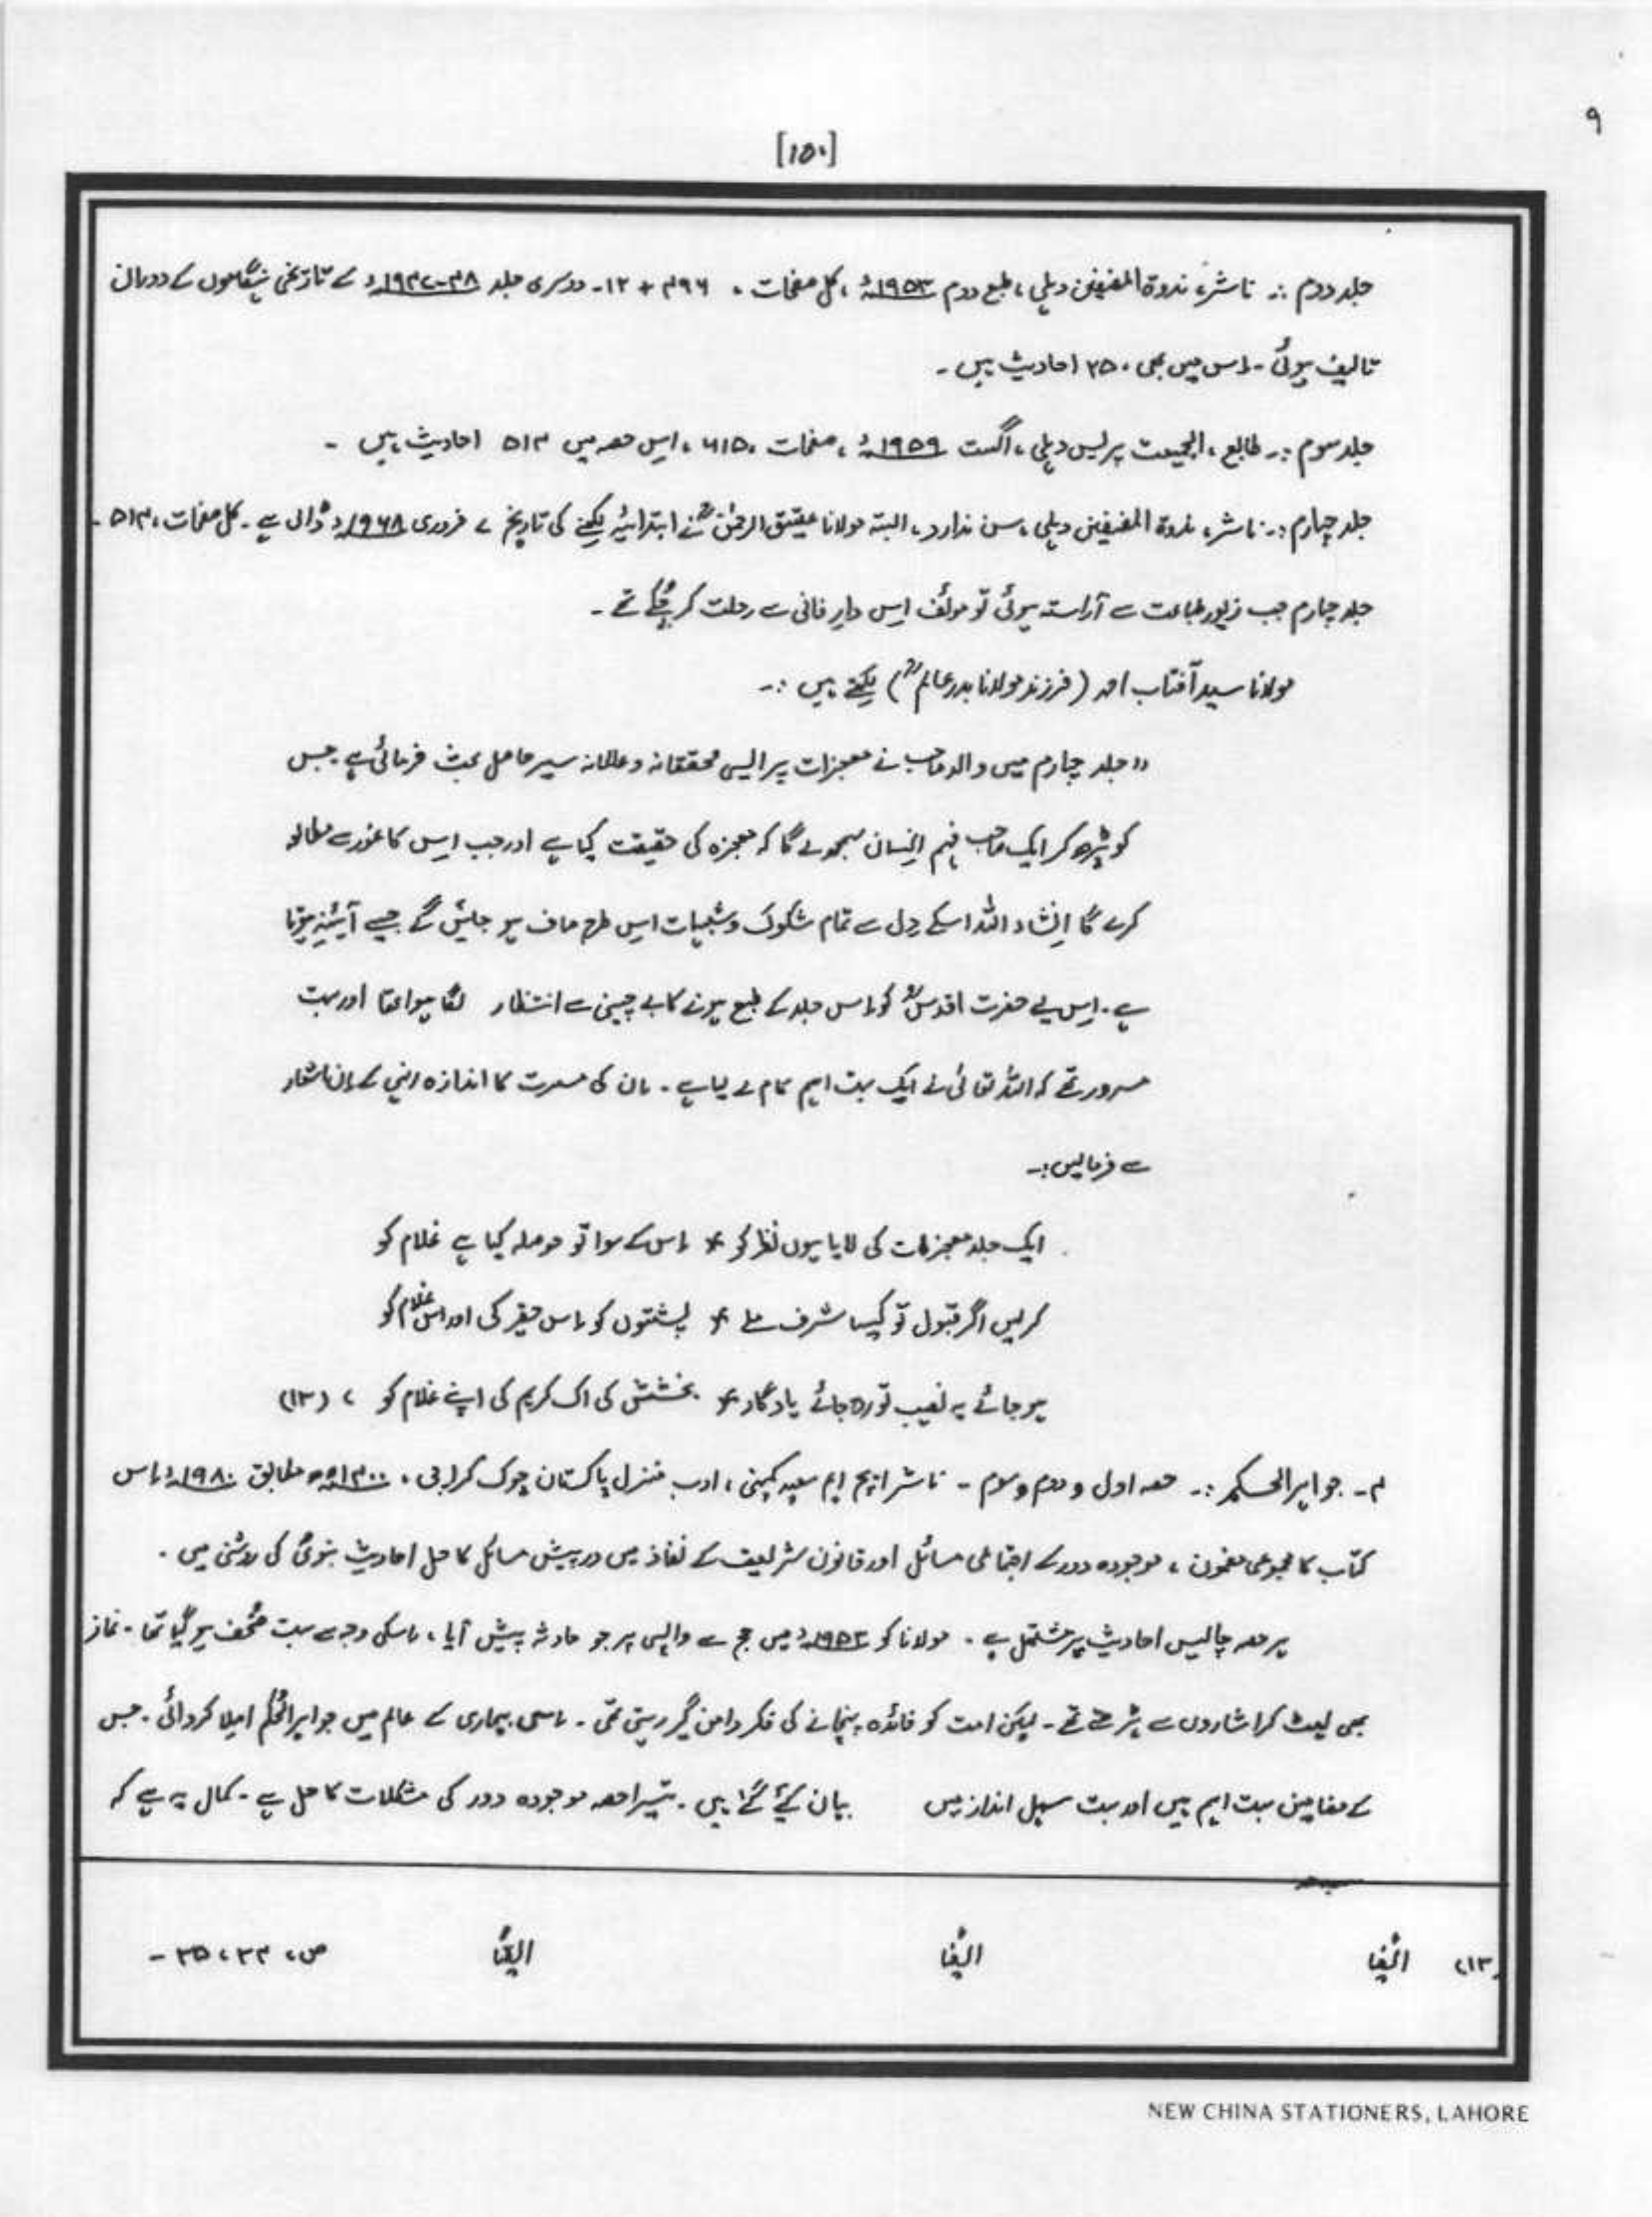 ۹
[۱۵۰]
جلد دوم :۔ ناشر، ندوۃ المصنفین دہلی ، طبع دوم ۱۹۵۳ء ، کل صفحات ، ۴۹۶ + ۱۲ ۔ دوسری جلد ۴۸-۱۹۴۷ء کے تاریخی ہنگاموں کے دوران
تالیف ہوئی ۔ اس میں بھی ۲۵۰ احادیث ہیں ۔
جلد سوم :۔ طابع ، الجمیعت پریس دہلی ، اگست ۱۹۵۹ء ، صفحات ۶۱۵ ، اِس حصہ میں ۵۱۴ احادیث ہیں ۔
جلد چہارم :۔ ناشر، ندوۃ المصنفین دہلی ، سن ندارد ، البتہ مولانا عتیق الرحمٰنؒ نے ابتدائیہ لکھنے کی تاریخ ۷ فروری ۱۹۶۸ء ڈالی ہے ۔ کل صفحات ، ۵۱۴ ۔
جلد چہارم جب زیور طباعت سے آراستہ ہوئی تو مولف اِس دارِ فانی سے رحلت کر چُکے تھے ۔
مولانا سید آفتاب احمد (فرزند مولانا بدر عالمؒ) لکھتے ہیں :۔
"جلد چہارم میں والد صاحب نے معجزات پر ایسی محققانہ و عالمانہ سیر حاصل بحث فرمائی ہے جس
کو پڑھ کر ایک صاحب فہم انسان سمجھ لے گا کہ معجزہ کی حقیقت کیا ہے اور جب اِس کا غور سے مطالعہ
کرے گا اِنشاء اللہ اسکے دِل سے تمام شکوک و شبہات اِس طرح صاف ہو جائیں گے جیسے آئینہ ہوتا
ہے ۔ اِس لیے حضرت اقدسؒ کو اِس جلد کے طبع ہونے کا بے چینی سے انتظار لگا ہوا تھا اور بہت
مسرور تھے کہ اللہ تعالیٰ نے ایک بہت اہم کام لے لیا ہے ۔ اُن کی مسرت کا اندازہ انہی کے اِن اشعار
سے فرمالیں :۔
ایک جلد معجزات کی لایا ہوں نظر کو * اِس کے سوا تو حوصلہ کیا ہے غلام کو
کرلیں اگر قبول تو کیسا شرف ملے * پشتوں کو اِس حقیر کی اور اس غلام کو
ہو جائے یہ نصیب تو رہ جائے یادگار * بخشش کی اک کریم کی اپنے غلام کو ، (۱۳)
۴۔ جواہر الحکم :۔ حصہ اول و دوم و سوم ۔ ناشر ایچ ایم سعید کمپنی ، ادب منزل پاکستان چوک کراچی ، ۱۴۰۰ھ مطابق ۱۹۸۰ء اِس
کتاب کا مجموعی مضمون ، موجودہ دور کے اجتماعی مسائل اور قانون شریعت کے نفاذ میں درپیش مسائل کا حل احادیث نبویؐ کی روشنی میں ۔
ہر حصہ چالیس احادیث پر مشتمل ہے ۔ مولانا کو ۱۹۵۲ء میں حج سے واپسی پر جو حادثہ پیش آیا ، اسکی وجہ سے بہت ضُعف ہو گیا تھا ۔ نماز
بھی لیٹ کر اشاروں سے پڑھتے تھے ۔ لیکن امت کو فائدہ پہنچانے کی فکر دامن گیر رہتی تھی ۔ اسی بیماری کے عالم میں جواہر الحُکم املا کروائی ۔ جس
کے مضامین بہت اہم ہیں اور بہت سہل انداز میں بیان کیئے گئے ہیں ۔ تیسرا حصہ موجودہ دور کی مشکلات کا حل ہے ۔ کمال یہ ہے کہ
(۱۳) ایضًا ایضًا ایضًا ص ، ۳۴ ، ۳۵ ۔
NEW CHINA STATIONERS, LAHORE